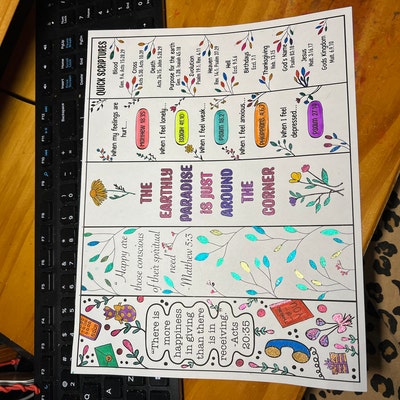 QUICK SCRIPTURES
Blood
Gen. 9:4, Acts 15:28,29
Cross
Acts 5:30, Acts 10:39
Death
Acts 24:15, John 5:28,29
Purpose for the earth
Gen. 1:28, Isaiah 45:18
Evolution
Psalm 19:1, Rev. 4:11
Heaven
Hell
Eccl. 9:5,6
Birthdays
Eccl. 7:1
Thanksgiving
God's Name
Psalm 83:18
Jesus
Matt. 3:16,17
Gods Kingdom
Matt. 6:9,10
When my feelings are
hurt...
When I feel lonely...
ISAIAH 41:10
When I feel weak...
When I feel anxious...
When I feel
depressed...
THE
EARTHLY
PARADISE
IS JUST
AROUND
THE
CORNER
"Happy are
those conscious
of their spiritual
need"
- Matthew 5:3
"There is
more
happiness
in giving
than there
is in
receiving."
-Acts
20:35